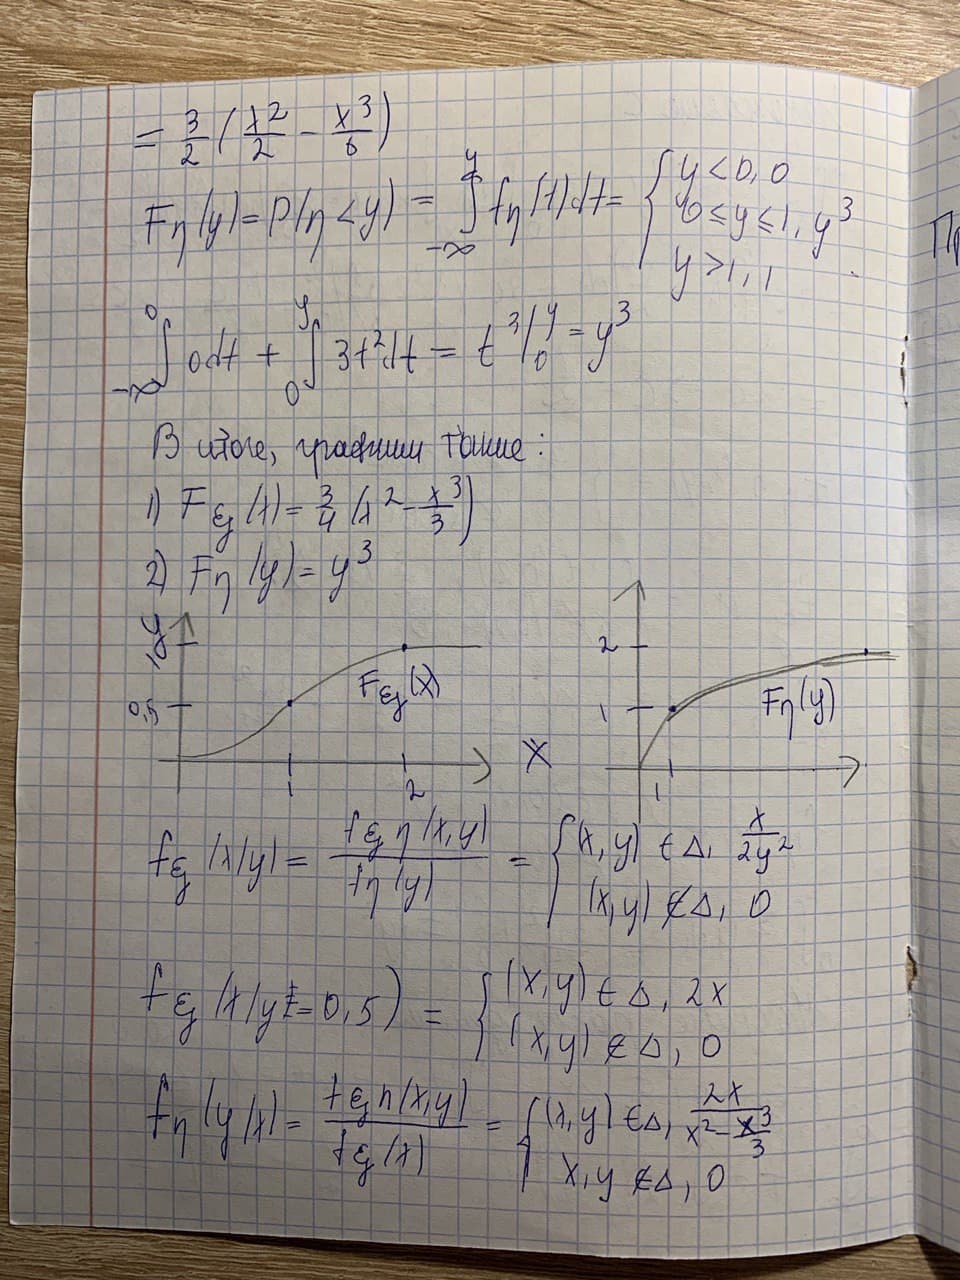 = 3/2 (x²/2 - x³/6)
Fη(y) = P(η < y) = ∫_{-∞}^{y} fη(t)dt = { y < 0, 0
0 ≤ y ≤ 1, y³
y > 1, 1
∫_{-∞}^{0} 0dt + ∫_{0}^{y} 3t²dt = t³|_{0}^{y} = y³
В итоге, графики такие:
1) Fξ(x) = 3/4 (x² - x³/3)
2) Fη(y) = y³
y
1
0,5
Fξ(x)
1
2
X
2
1
Fη(y)
1
fξ(x/y) = fξη(x,y) / fη(y) = { (x,y) ∈ Δ, x/2y²
(x,y) ∉ Δ, 0
fξ(x/y = 0,5) = { (x,y) ∈ Δ, 2x
(x,y) ∉ Δ, 0
fη(y/x) = fξη(x,y) / fξ(x) = { (x,y) ∈ Δ, 2x / (x² - x³/3)
x,y ∉ Δ, 0
Пр